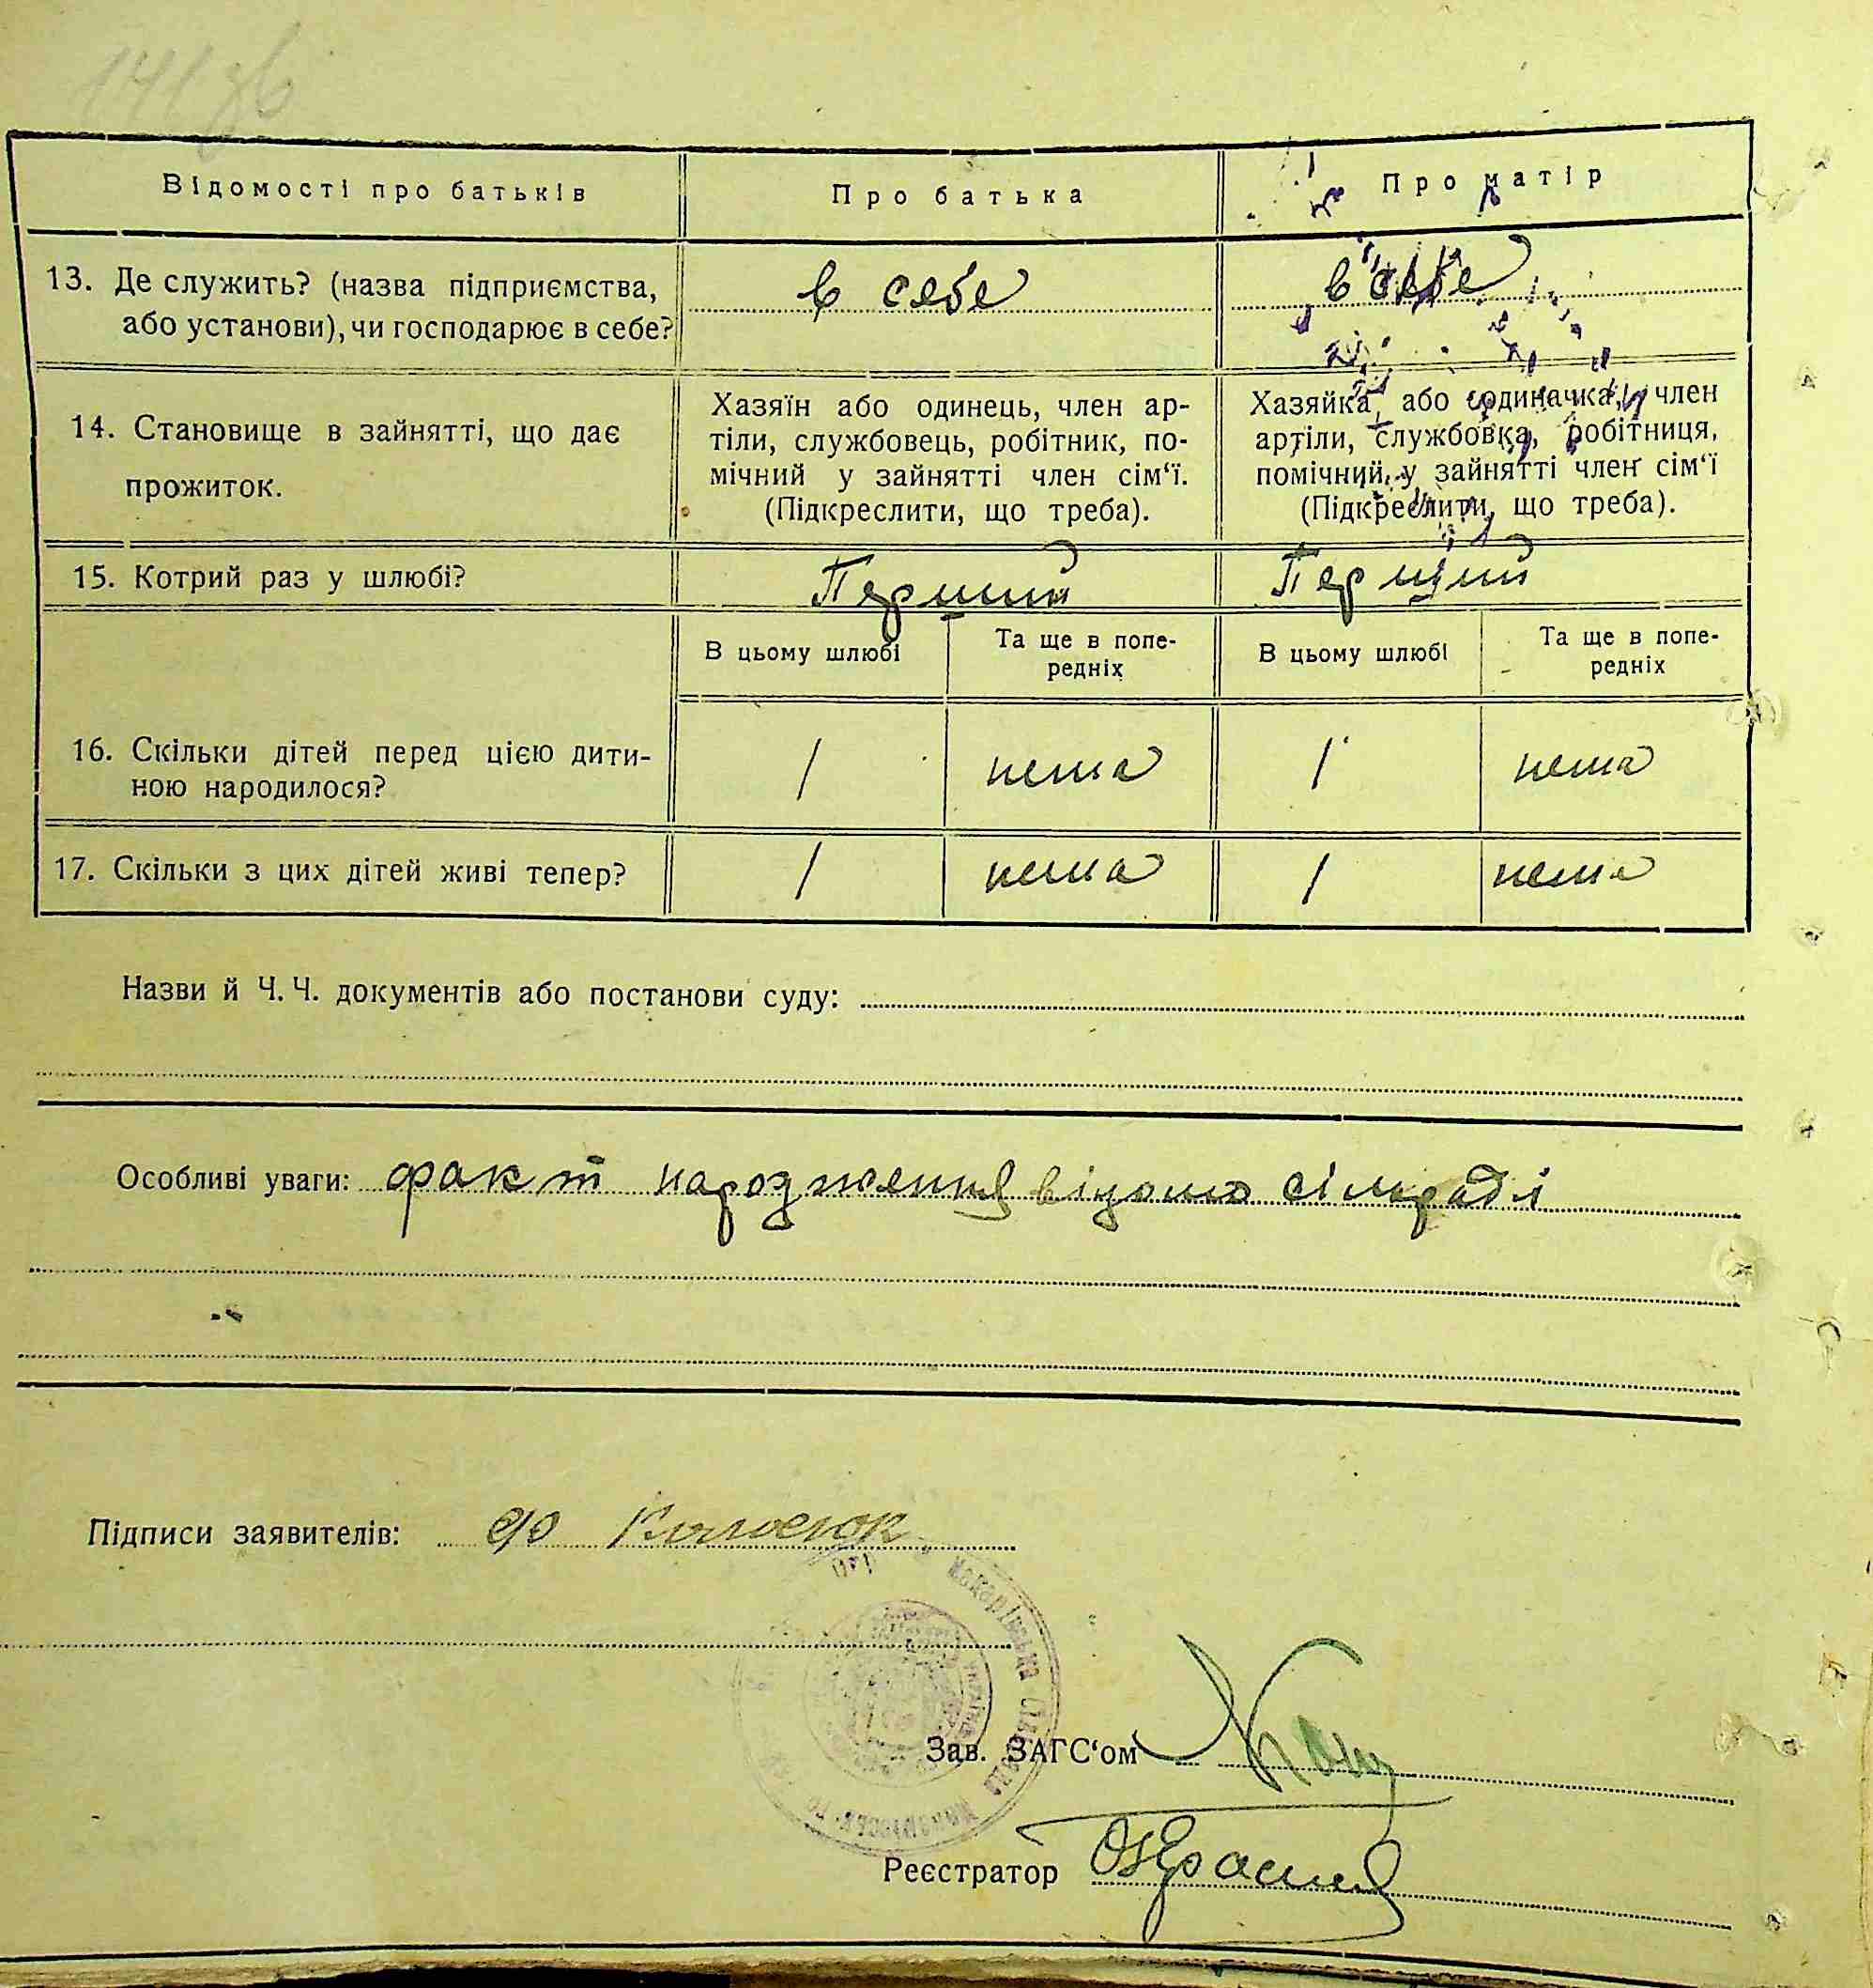 141 зв
Відомості про батьків
Про батька
Про матір
13. Де служить? (назва підприємства,
або установи), чи господарює в себе?
в себе
в себе
14. Становище в зайнятті, що дає
прожиток.
Хазяїн або одинець, член ар-
тіли, службовець, робітник, по-
мічний у зайнятті член сім‘ї.
(Підкреслити, що треба).
Хазяйка, або одиначка, член
артіли, службовка, робітниця,
помічний у зайнятті член сім‘ї
(Підкреслити, що треба).
15. Котрий раз у шлюбі?
Перший
Перший
В цьому шлюбі
Та ще в попе-
редніх
В цьому шлюбі
Та ще в попе-
редніх
16. Скільки дітей перед цією дити-
ною народилося?
1
нема
1
нема
17. Скільки з цих дітей живі тепер?
1
нема
1
нема
Назви й Ч. Ч. документів або постанови суду:
Особливі уваги: факт народження відомо сільраді
Підписи заявителів:
Макарівська Сільрада
Зав. ЗАГС‘ом
Реєстратор